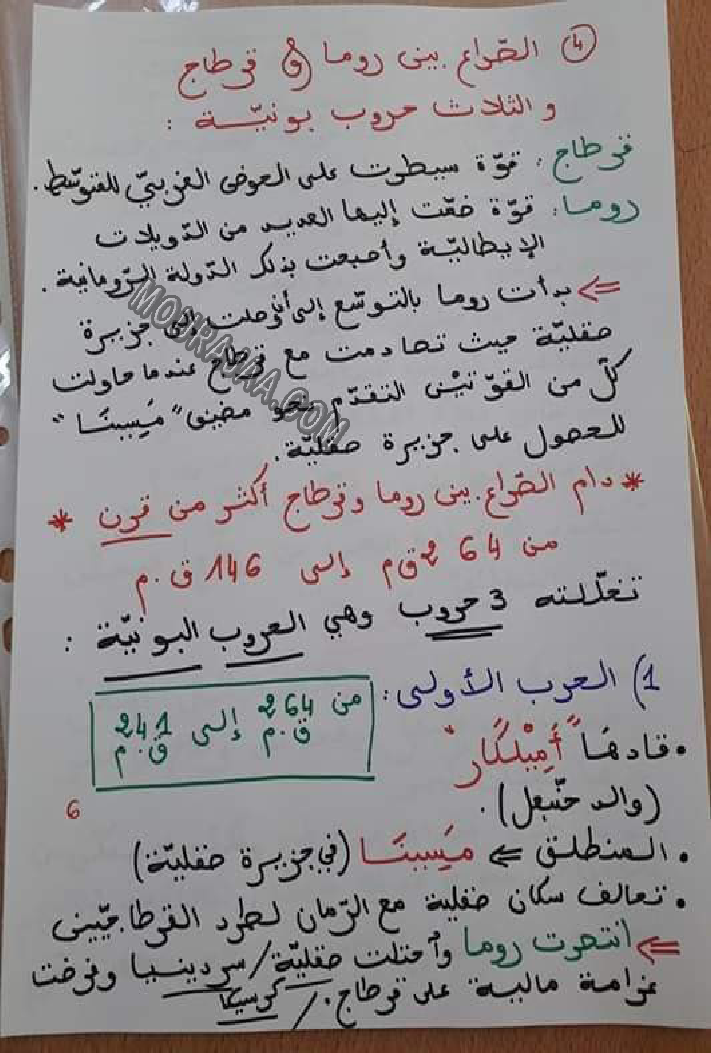 ④ الصّراع بين روما و قرطاج
و الثلاث حروب بونيّة :
قرطاج : قوّة سيطرت على الحوض الغربيّ للمتوسّط .
روما : قوّة ضمّت إليها العديد من الدّويلات
الإيطاليّة وأصبحت بذلك الدّولة الرّومانية .
⇐ بدأت روما بالتوسّع إلى أن وصلت إلى جزيرة
صقليّة حيث تصادمت مع قرطاج عندما حاولت
كلّ من القوّتين التقدّم نحو مضيق "مَسِينَا"
للحصول على جزيرة صقليّة .
* دام الصّراع بين روما وقرطاج أكثر من قرن *
من 264 ق م إلى 146 ق . م
تخلّلته 3 حروب وهي الحروب البونيّة :
1) الحرب الأولى : من 264 ق.م إلى 241 ق.م
• قادها "أَمِيلْكَار"
(والد حنّبعل) .
6
• المنطلق ⇐ مَسِينَا (في جزيرة صقليّة)
• تحالف سكان صقلية مع الرّمان لطرد القرطاجيّين
⇐ انتصرت روما وأحتلت صقليّة / سردينيا وفرضت
غرامة مالية على قرطاج . / كرسيكا
MOURAJAA.COM